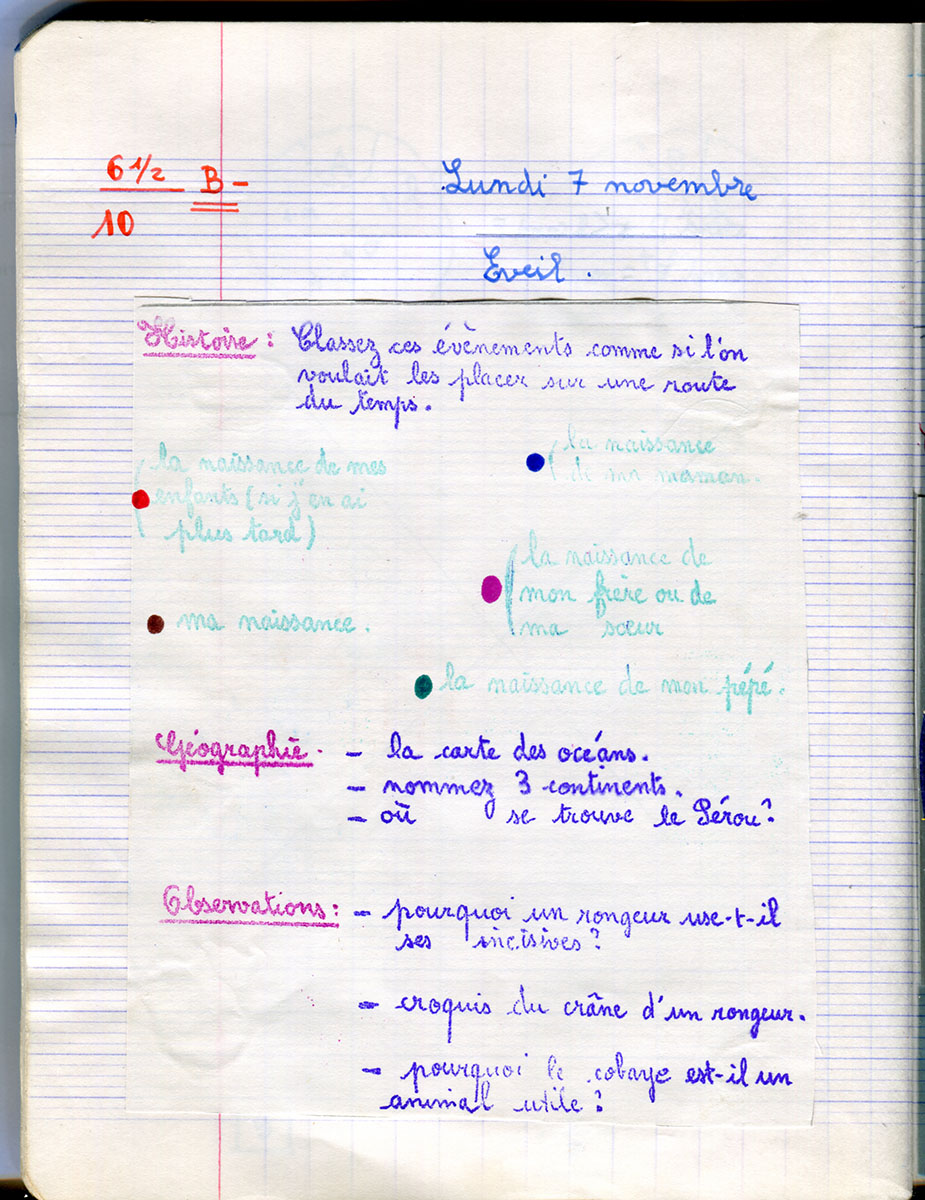 6 1/2 B -
10
Lundi 7 novembre
Eveil .
Histoire : Classez ces évènements comme si l'on
voulait les placer sur une route
du temps.
la naissance de mes
enfants (si j'en ai
plus tard)
la naissance
de ma maman.
la naissance de
mon frère ou de
ma sœur
ma naissance.
la naissance de mon pépé.
Géographie. - la carte des océans.
- nommez 3 continents.
- où se trouve le Pérou?
Observations : - pourquoi un rongeur use-t-il
ses incisives?
- croquis du crâne d'un rongeur.
- pourquoi le cobaye est-il un
animal utile?